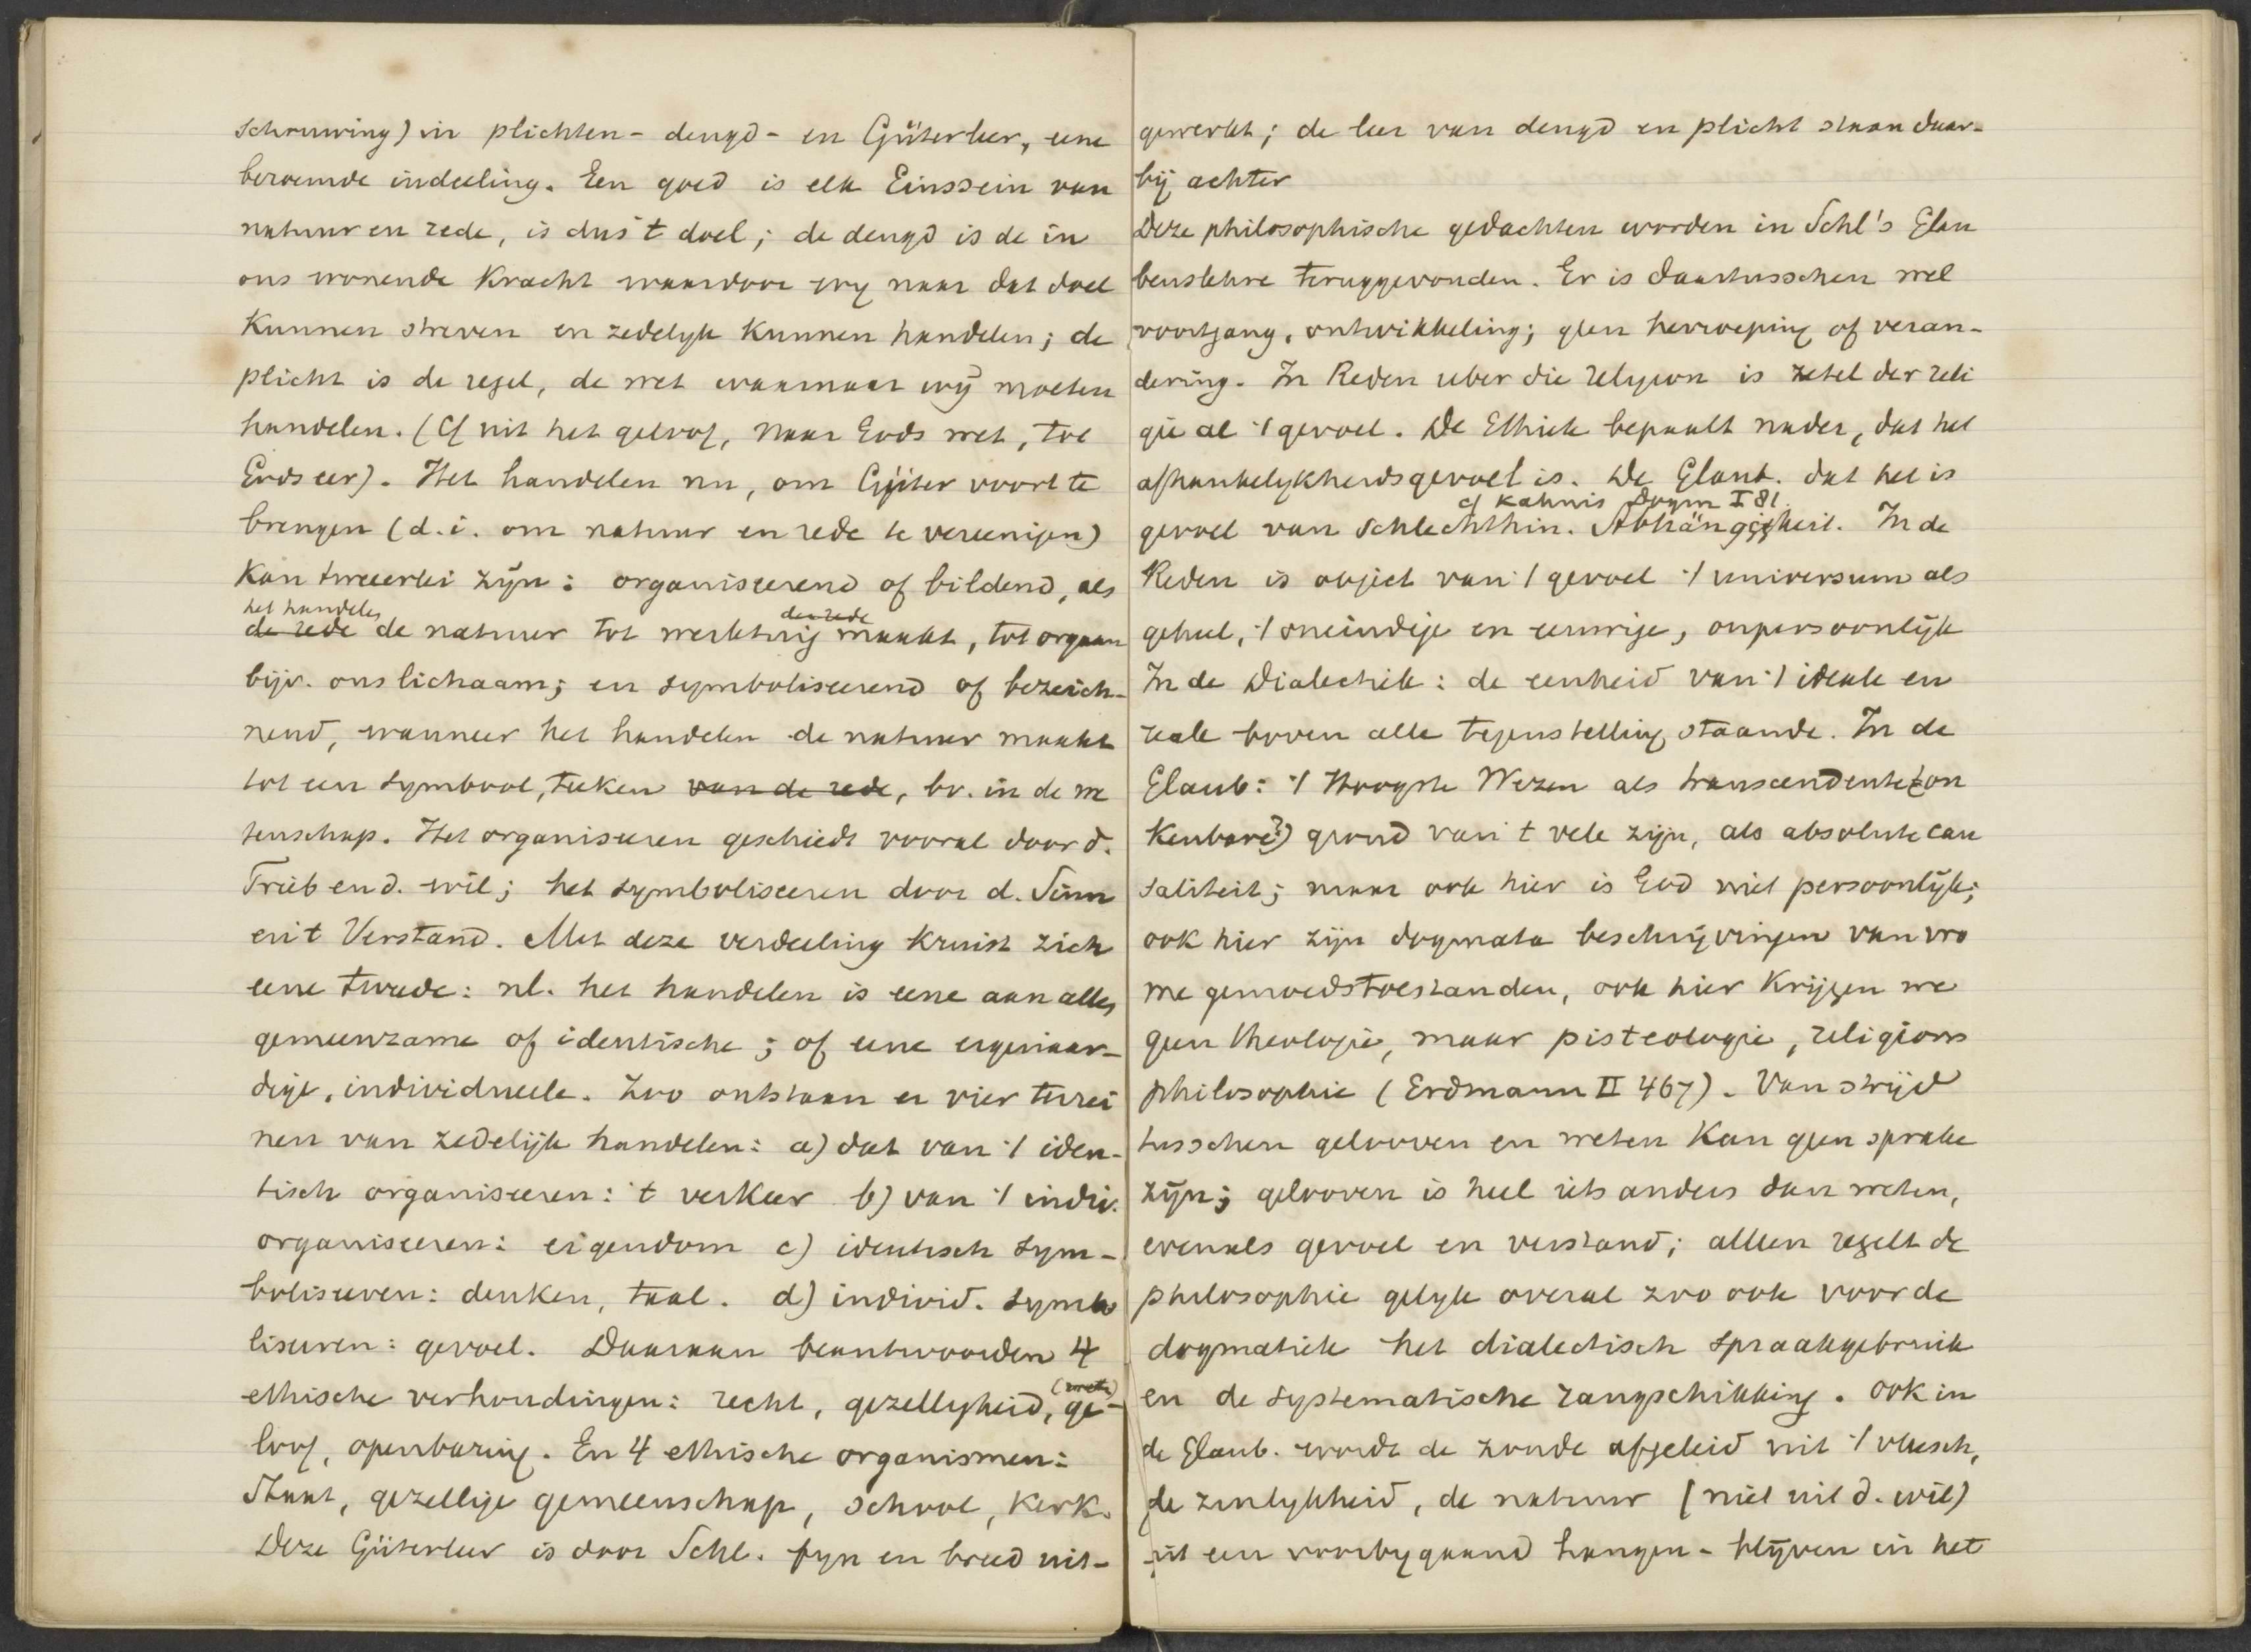 schruwing) in plichten- deugd- en Güterleer, eene
beroemde indeeling. Een goed is elk Einssein van
natuur en rede, is dus 't doel; de deugd is de in
ons wonende kracht waardoor wy naar dat doel
kunnen streven en zedelyk kunnen handelen; de
plicht is de regel, de wet waarnaar wij moeten
handelen. (Cf uit het geloof, naar Gods wet, tot
Gods eer). Het handelen nu, om Güter voort te
brengen (d.i. om natuur en rede te vereenigen)
kan tweeerlei zijn: organiseerend of bildend, als
het handelen der rede
de rede de natuur tot werktuig maakt, tot orgaan
bijv. ons lichaam; en symboliseerend of bezeich-
nend, wanneer het handelen de natuur maakt
tot een symbool, teeken van de rede, bv. in de we
tenschap. Het organiseeren geschiedt vooral door d.
Trieb en d. wil; het symboliseeren door d. Sinn
en 't Verstand. Met deze verdeeling kruist zich
eene tweede: nl. het handelen is eene aan alles
gemeenzame of identische; of eene eigenaar-
dige, individueele. Zoo ontstaan er vier terrei
nen van zedelijk handelen: a) dat van 't iden-
tisch organiseeren: 't verkeer b) van 't indiv.
organiseeren: eigendom c) identisch sym-
boliseeren: denken, taal. d) individ. symbo
liseeren: gevoel. Daaraan beantwoorden 4
ethische verhoudingen: recht, gezelligheid, ge-
loof, openbaring. En 4 ethische organismen:
Staat, gezellige gemeenschap, school, kerk.
Deze Güterleer is door Schl. fyn en breed uit-
gewerkt; de leer van deugd en plicht staan daar-
bij achter
Deze philosophische gedachten worden in Schl's Glau
benslehre teruggevonden. Er is daartusschen wel
voortgang, ontwikkeling; geen herroeping of veran-
dering. In Reden uber die Religion is zetel der reli
gie al 't gevoel. De Ethiek bepaalt nader, dat het
afhankelykheidsgevoel is. De Glaub. dat het is
cf Kahnis Dogm I 81.
gevoel van schlechthin. Abhängigkeit. In de
Reden is object van 't gevoel 't universum als
geheel, 't oneindige en eeuwige, onpersoonlijk
In de Dialectiek: de eenheid van 't ideale en
reale boven alle tegenstelling staande. In de
Glaub: 't Hoogste Wezen als transcendente (on
kenbare?) grond van 't vele zijn, als absolute cau
saliteit; maar ook hier is God niet persoonlijk;
ook hier zijn dogmata beschrijvingen van vro
me gemoedstoestanden, ook hier krijgen we
geen theologie, maar pisteologie, religions
philosophie (Erdmann II 467). Van strijd
tusschen gelooven en weten kan geen sprake
zijn; gelooven is heel iets anders dan weten,
evenals gevoel en verstand; alleen regelt de
philosophie gelyk overal zoo ook voor de
dogmatiek het dialectisch spraakgebruik
en de systematische rangschikking. Ook in
de Glaub. wordt de zonde afgeleid uit 't vleesch,
de zinlykheid, de natuur (niet uit d. wil)
uit een voorbygaand hangen-blijven in het